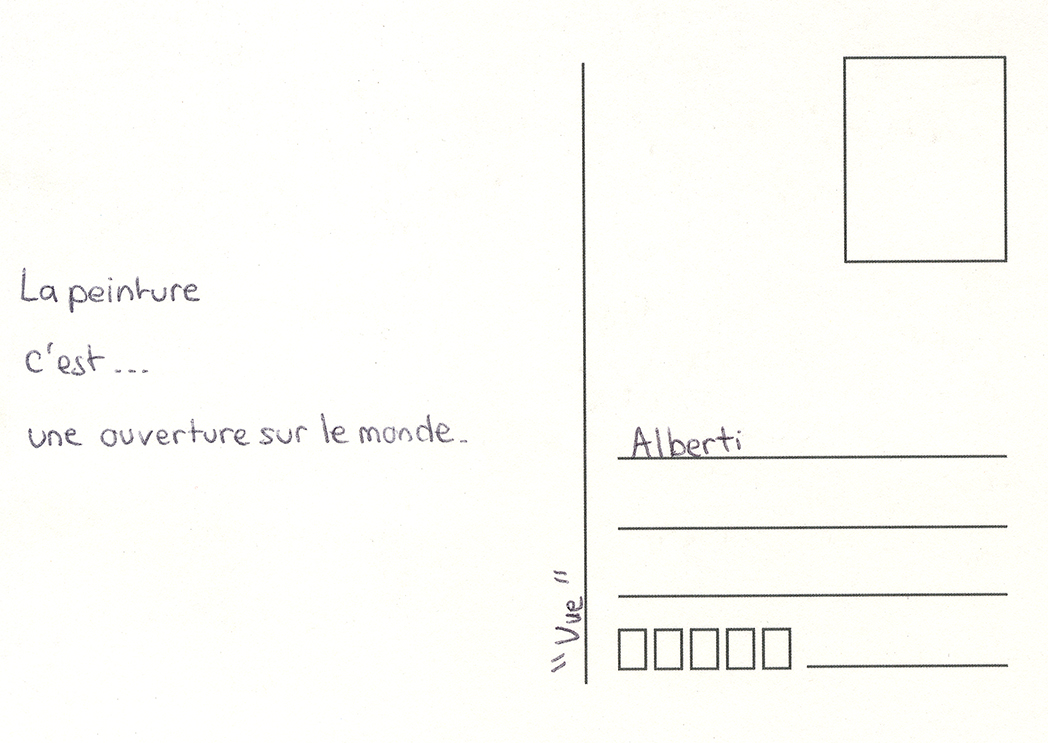 La peinture
c'est...
une ouverture sur le monde.
Alberti
"Vue"